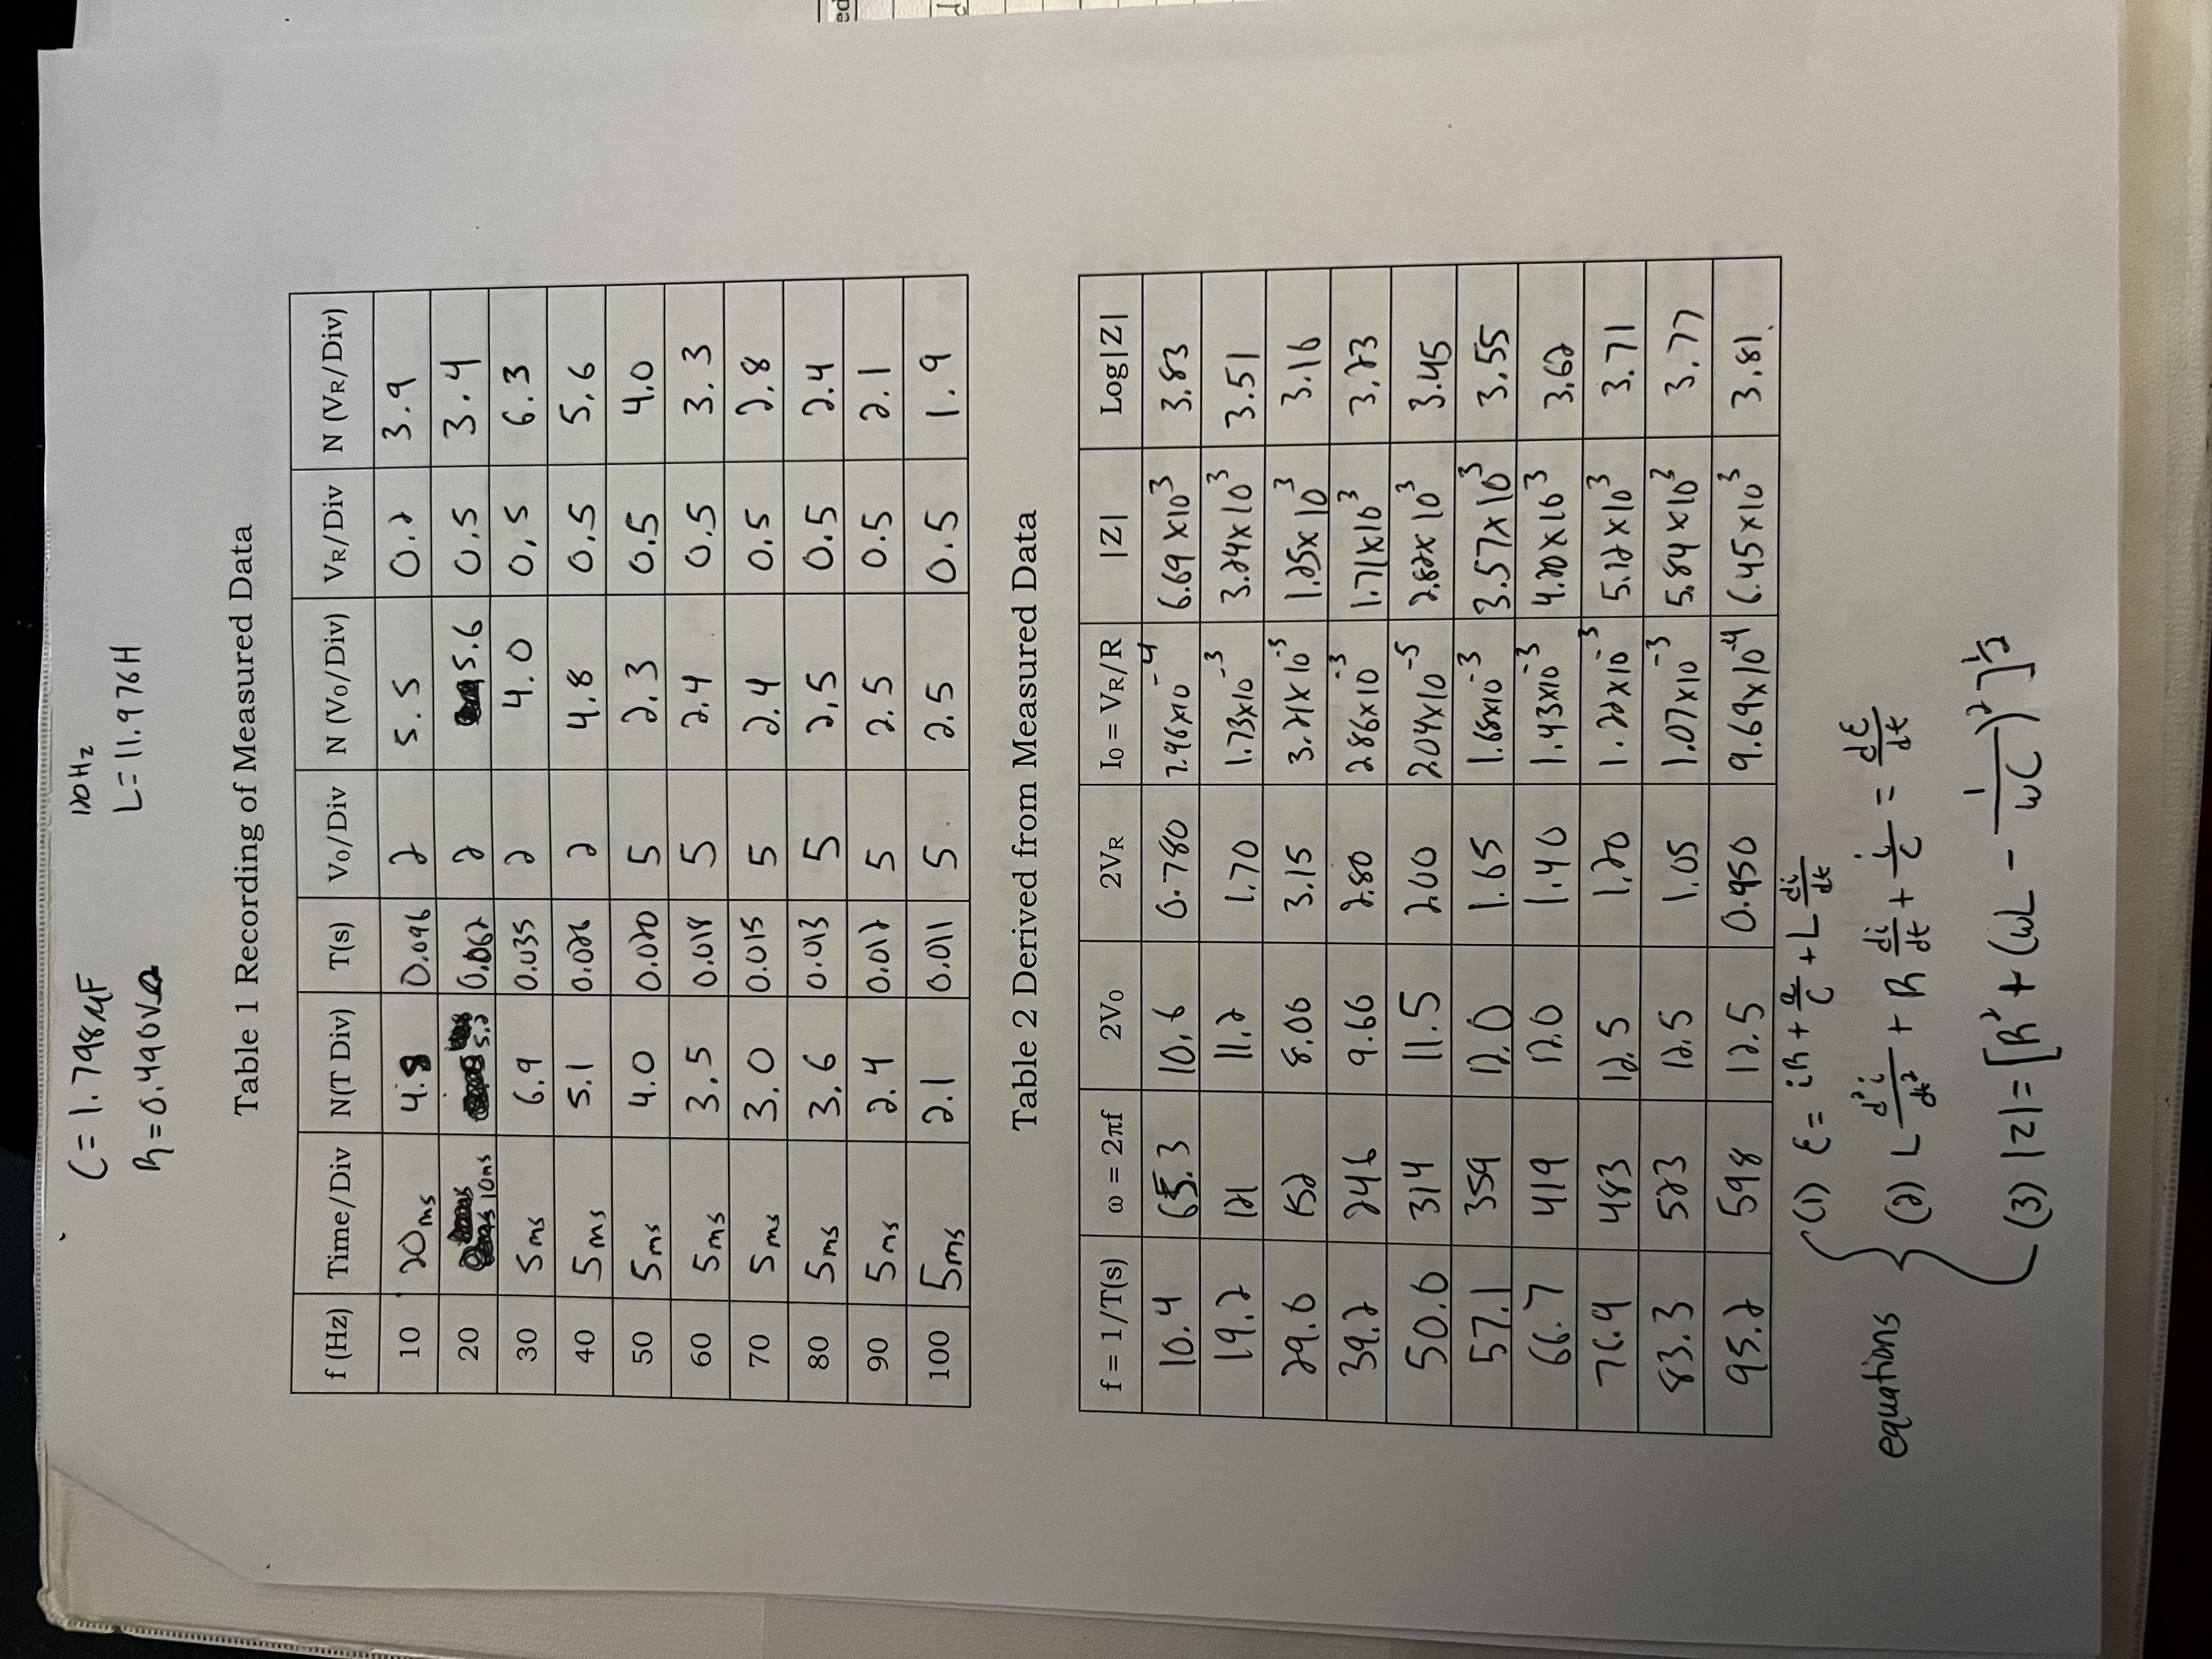 C = 1.798μF 120Hz
R = 0.490kΩ L = 11.976H
Table 1 Recording of Measured Data
f (Hz) Time/Div N(T Div) T(s) V₀/Div N (V₀/Div) V_R/Div N (V_R/Div)
10 20ms 4.8 0.096 2 5.5 0.2 3.9
20 10ms 5.2 0.062 2 5.6 0.5 3.4
30 5ms 6.9 0.035 2 4.0 0.5 6.3
40 5ms 5.1 0.026 2 4.8 0.5 5.6
50 5ms 4.0 0.020 5 2.3 0.5 4.0
60 5ms 3.5 0.018 5 2.4 0.5 3.3
70 5ms 3.0 0.015 5 2.4 0.5 2.8
80 5ms 3.6 0.013 5 2.5 0.5 2.4
90 5ms 2.4 0.012 5 2.5 0.5 2.1
100 5ms 2.1 0.011 5 2.5 0.5 1.9
Table 2 Derived from Measured Data
f = 1/T(s) ω = 2πf 2V₀ 2V_R I₀ = V_R/R |Z| Log|Z|
10.4 65.3 10.6 0.780 7.96x10⁻⁴ 6.69x10³ 3.83
19.2 121 11.2 1.70 1.73x10⁻³ 3.24x10³ 3.51
29.0 152 8.00 3.15 3.21x10⁻³ 1.25x10³ 3.16
39.2 246 9.60 2.80 2.86x10⁻³ 1.71x10³ 3.23
50.0 314 11.5 2.00 2.04x10⁻⁵ 2.82x10³ 3.45
57.1 359 12.0 1.65 1.68x10⁻³ 3.57x10³ 3.55
66.7 419 12.0 1.40 1.43x10⁻³ 4.20x10³ 3.62
76.9 483 12.5 1.20 1.22x10⁻³ 5.12x10³ 3.71
83.3 523 12.5 1.05 1.07x10⁻³ 5.84x10³ 3.77
95.2 598 12.5 0.950 9.69x10⁻⁴ 6.45x10³ 3.81
(1) ε = iR + Q/C + L di/dt
equations (2) L d²i/dt² + R di/dt + i/C = dε/dt
(3) |Z| = [R² + (ωL - 1/ωC)²]^½